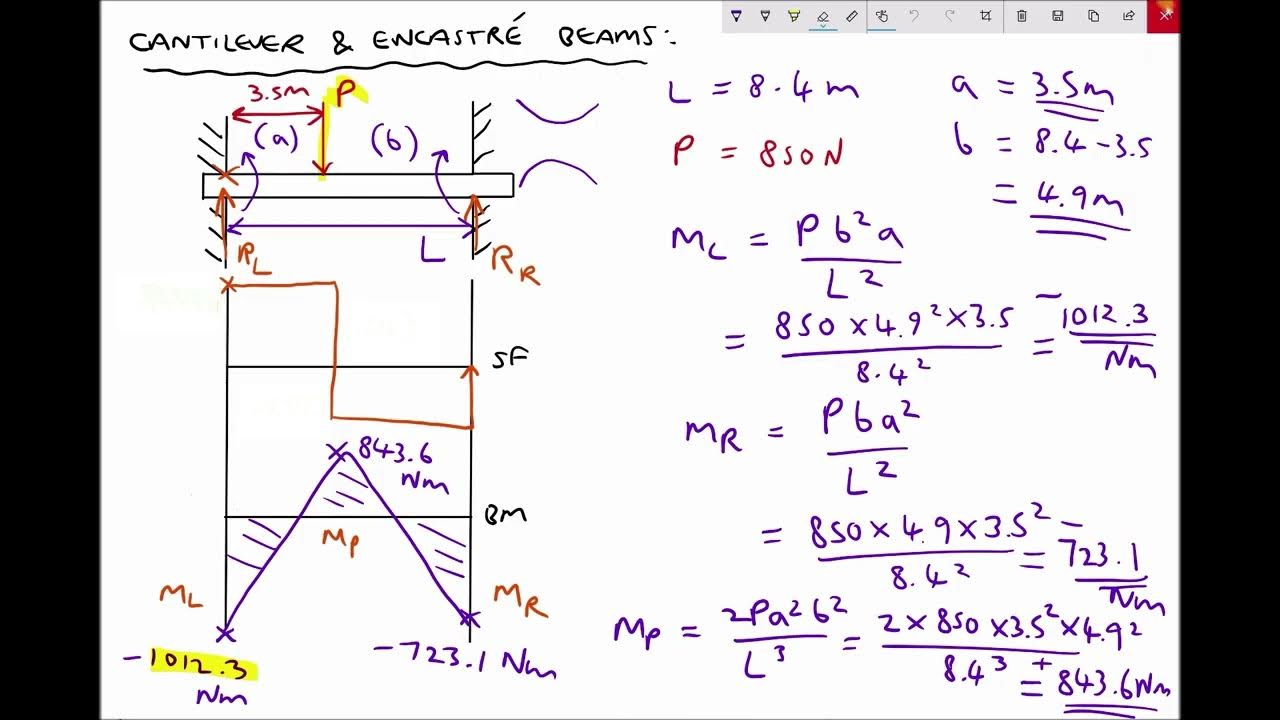 CANTILEVER & ENCASTRÉ BEAMS:
3.5m
P
(a)
(b)
L
RL
RR
SF
843.6
Nm
BM
MP
ML
MR
-1012.3
Nm
-723.1 Nm
L = 8.4 m
a = 3.5m
P = 850N
b = 8.4 - 3.5
= 4.9m
ML = Pb²a / L²
= 850 × 4.9² × 3.5 / 8.4² = -1012.3 Nm
MR = Pba² / L²
= 850 × 4.9 × 3.5² / 8.4² = -723.1 Nm
MP = 2Pa²b² / L³ = 2 × 850 × 3.5² × 4.9² / 8.4³ = +843.6Nm